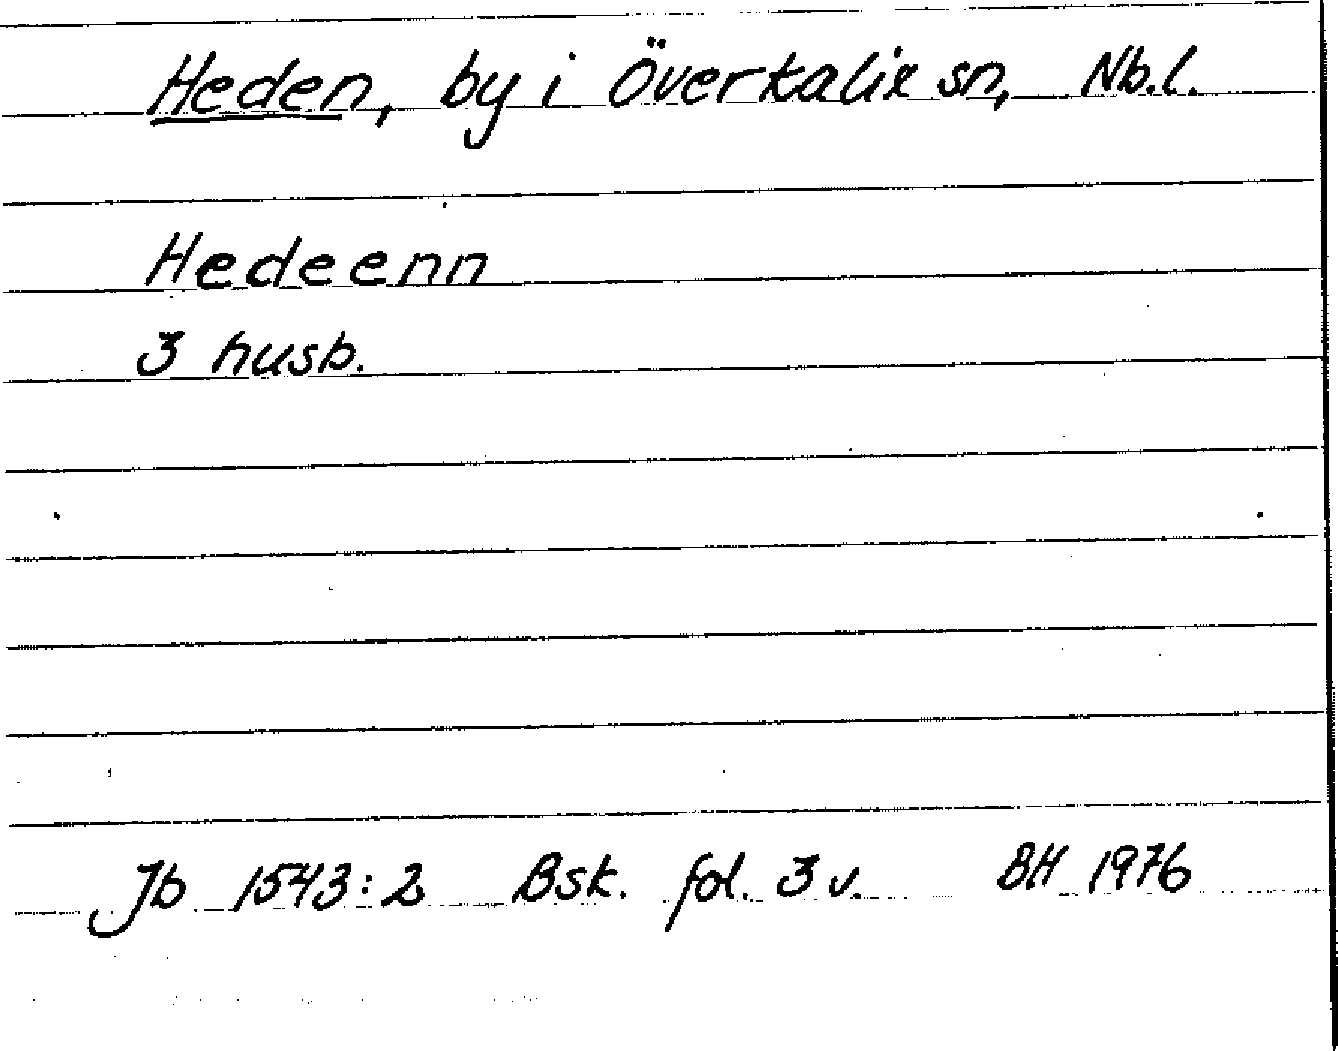 Heden, by i Överkalix sn, Nb.l.
Hedeenn
3 husb.
Jb 1543:2 Bsk. fol. 3 v. BH 1976